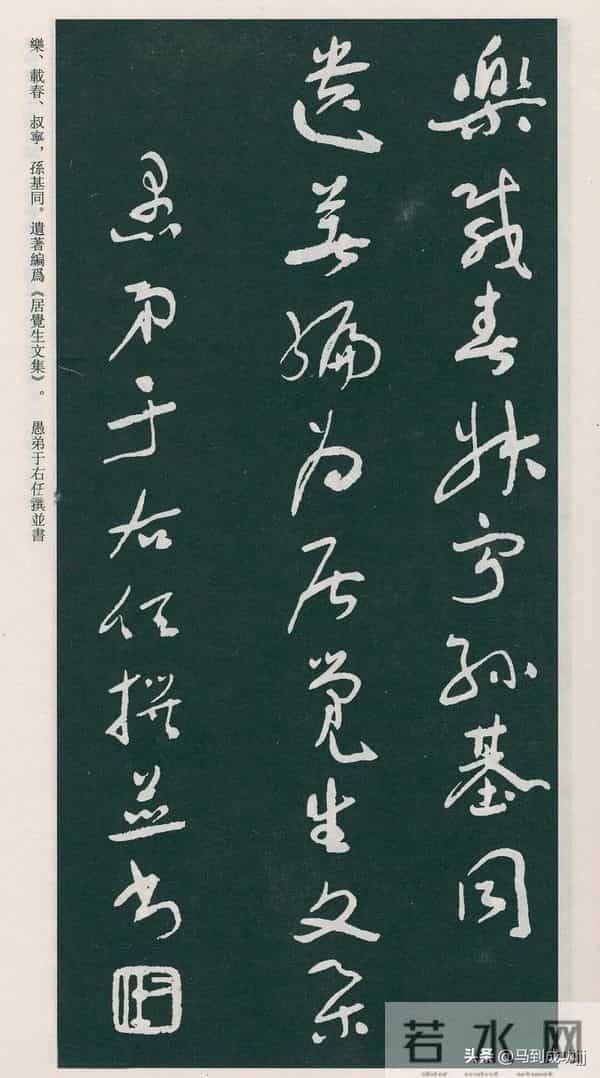 樂載春叔寧孫基同
遺著編为居覺生文集
愚弟于右任撰並書
樂、載春、叔寧，孫基同。遺著編爲《居覺生文集》。 愚弟于右任撰並書
若水网
头条 @马到成功jjj